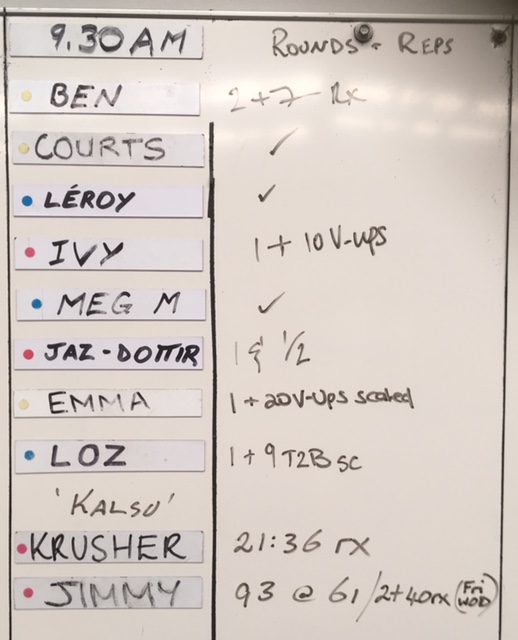 9.30AM ROUNDS + REPS
BEN 2+7 Rx
COURTS ✓
LÉROY ✓
IVY 1 + 10 V-ups
MEG M ✓
JAZ-DOTTIR 1 & 1/2
EMMA 1 + 20 V-Ups scaled
LOZ 1 + 9 T2B SC
'KALSU'
KRUSHER 21:36 rx
JIMMY 93 @ 61 / 2+40rx (Fri WOD)